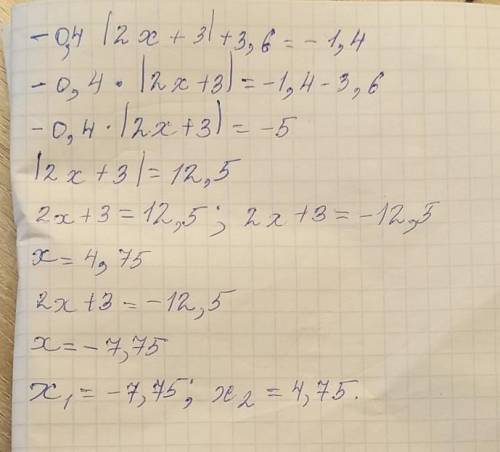 -0,4 |2x+3|+3,6=-1,4
-0,4·|2x+3|=-1,4-3,6
-0,4·|2x+3|=-5
|2x+3|=12,5
2x+3=12,5; 2x+3=-12,5
x=4,75
2x+3=-12,5
x=-7,75
x₁=-7,75; x₂=4,75.